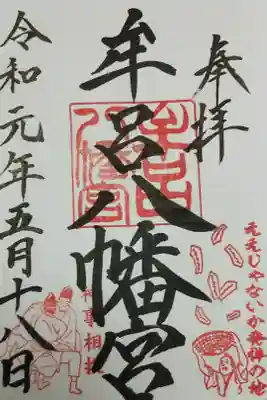 奉拝
牟呂八幡宮
牟呂八幡宮
ええじゃないか発祥の地
神事相撲
令和元年五月十八日